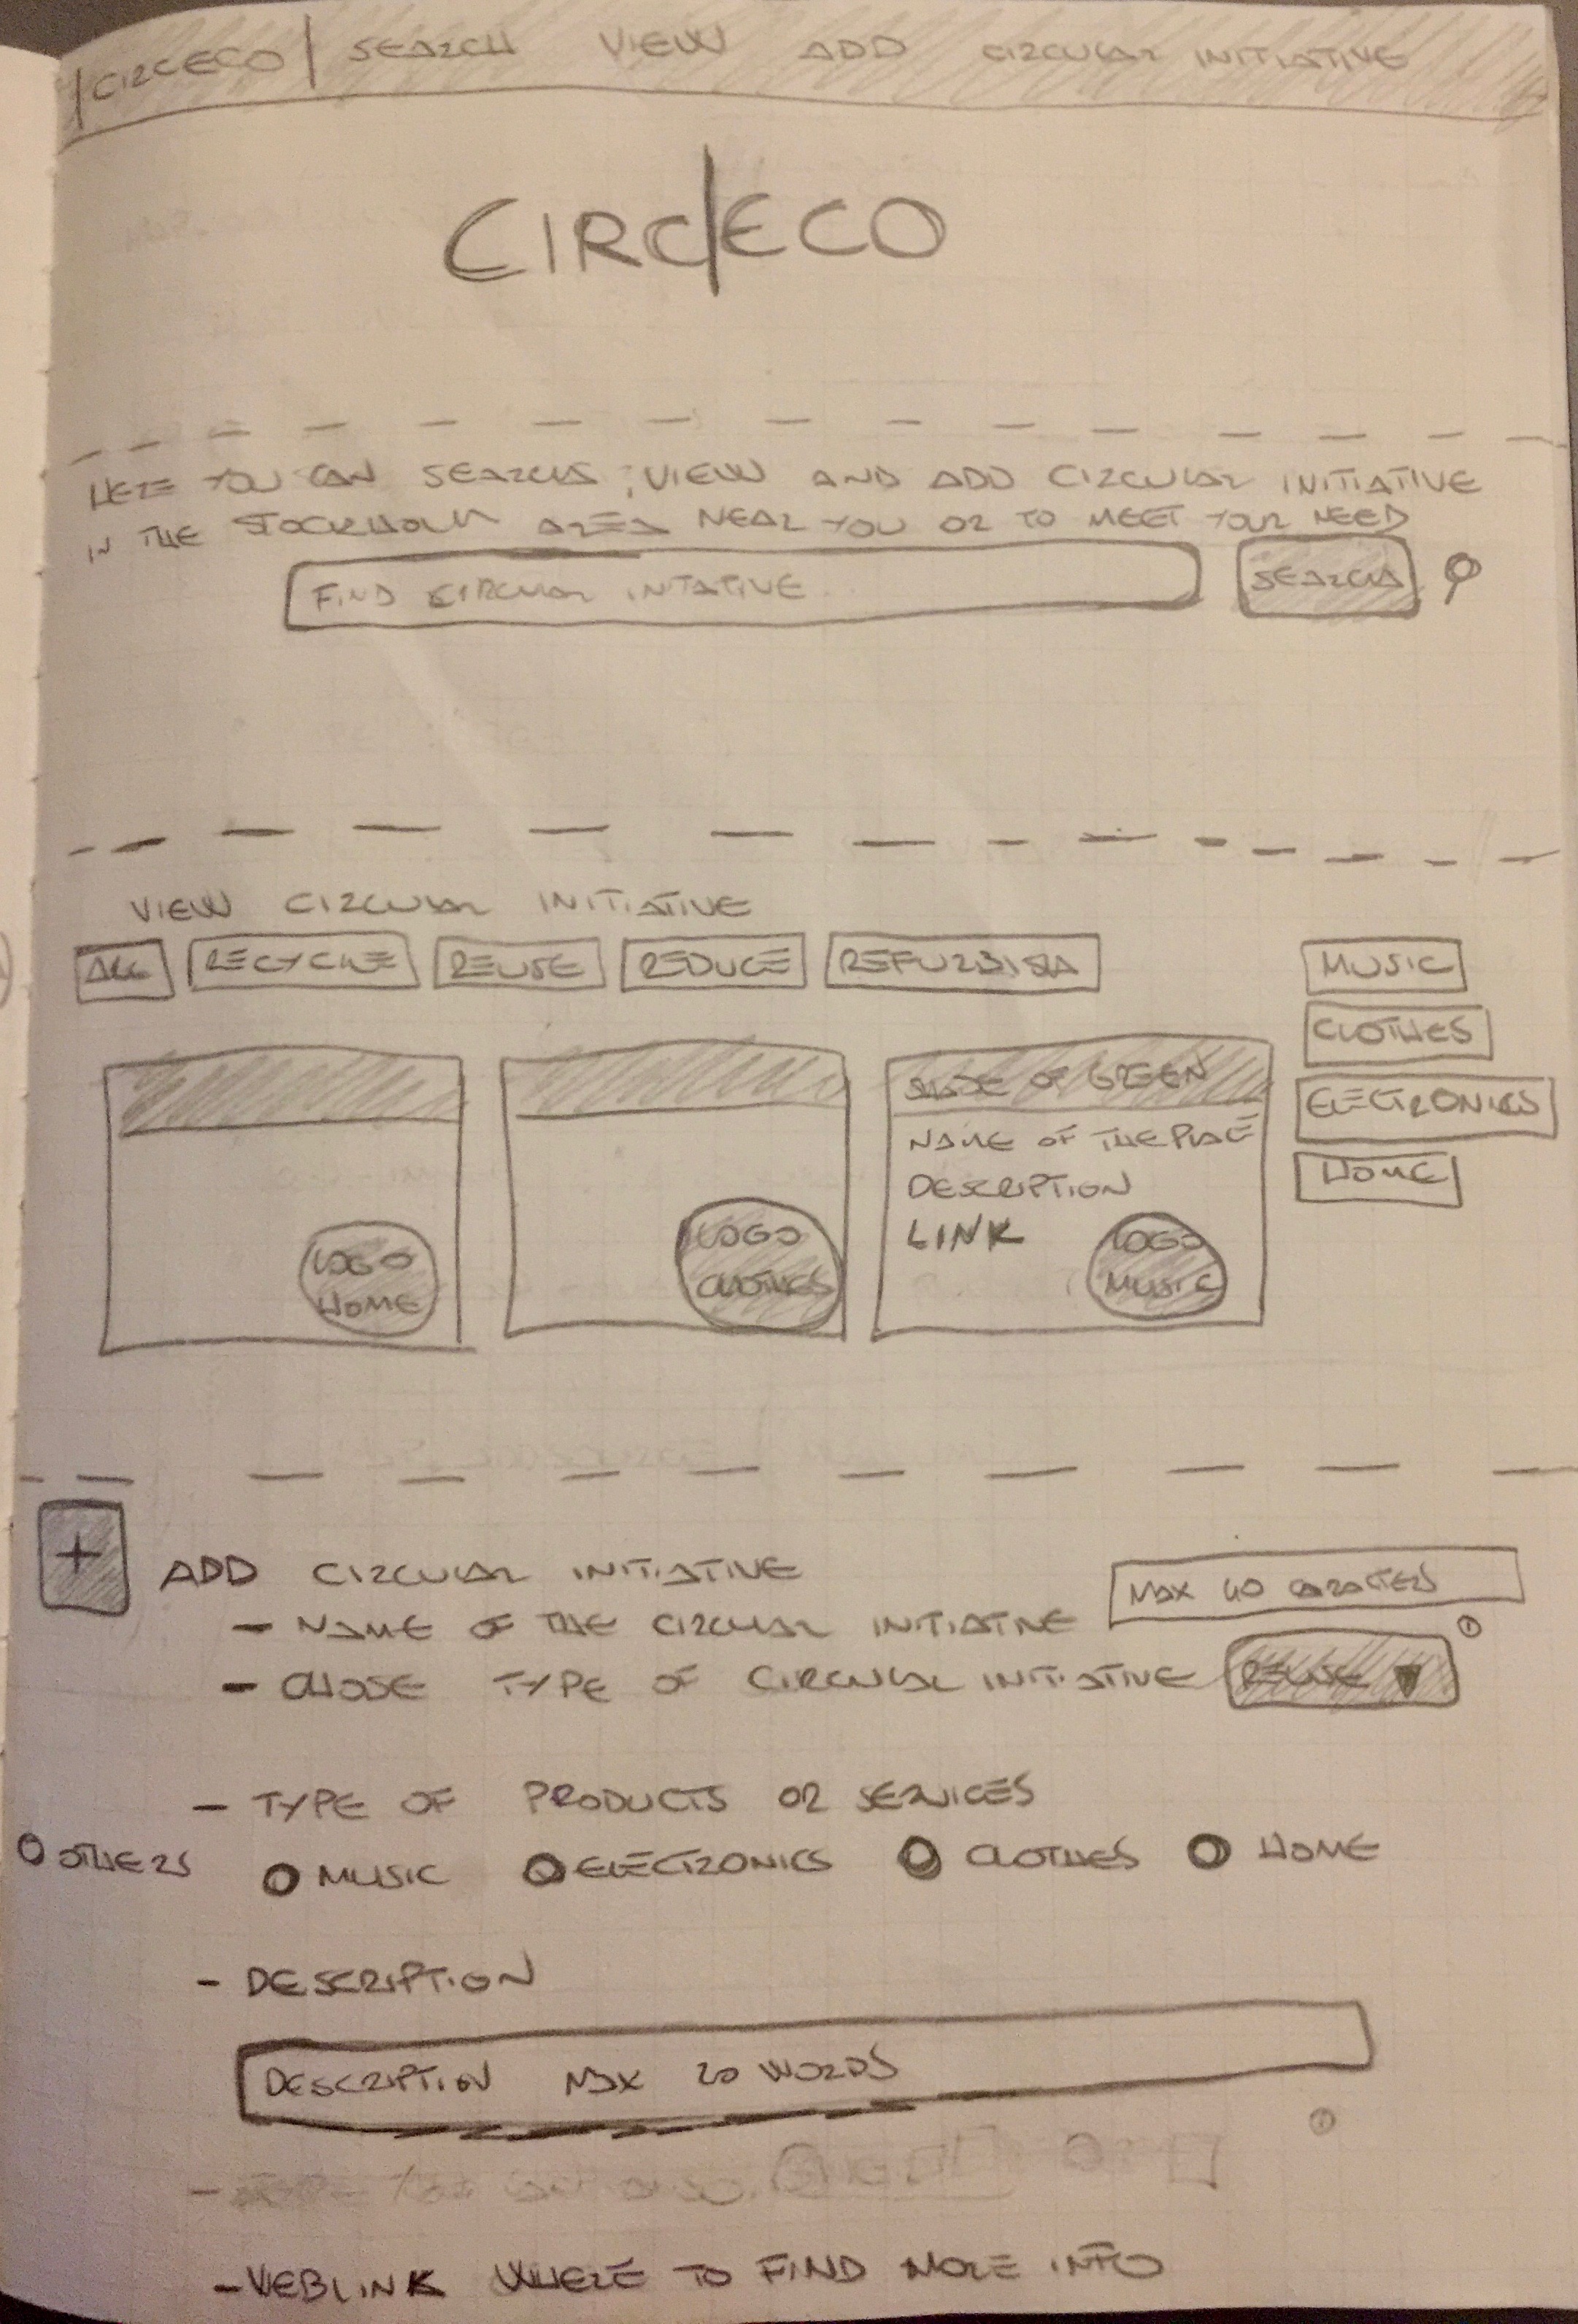 |CIRCECO| SEARCH VIEW ADD CIRCULAR INITIATIVE
CIRC|ECO
HERE YOU CAN SEARCH, VIEW AND ADD CIRCULAR INITIATIVE
IN THE STOCKHOLM AREA NEAR YOU OR TO MEET YOUR NEED
FIND CIRCULAR INTATIVE
SEARCH
VIEW CIRCULAR INITIATIVE
ALL RECYCLE REUSE REDUCE REFURBISH
MUSIC
CLOTHES
ELECTRONICS
HOME
LOGO
HOME
LOGO
CLOTHES
SHADE OF GREEN
NAME OF THE PLACE
DESCRIPTION
LINK
LOGO
MUSIC
+
ADD CIRCULAR INITIATIVE
- NAME OF THE CIRCULAR INITIATIVE
MAX 40 CARACTERS
- CHOSE TYPE OF CIRCULAR INITIATIVE REUSE ▼
- TYPE OF PRODUCTS OR SERVICES
OTHERS MUSIC ELECTRONICS CLOTHES HOME
- DESCRIPTION
DESCRIPTION MAX 20 WORDS
- WEBLINK WHERE TO FIND MORE INFO